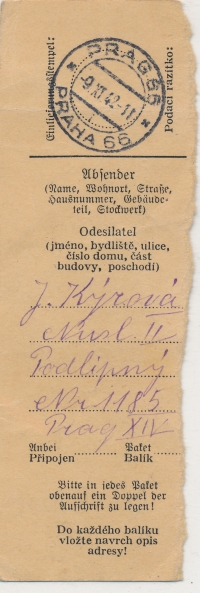 Einlieferungsstempel:
PRAG 66
-9.XI.42-11
PRAHA 66
Podací razítko:
Absender
(Name, Wohnort, Straße,
Hausnummer, Gebäude-
teil, Stockwerk)
Odesilatel
(jméno, bydliště, ulice,
číslo domu, část
budovy, poschodí)
J. Kýrová
Nusle II
Podlipný
Nr 1185
Prag XIV
Anbei Paket
Připojen Balík
Bitte in jedes Paket
obenauf ein Doppel der
Aufschrift zu legen!
Do každého balíku
vložte navrch opis
adresy!